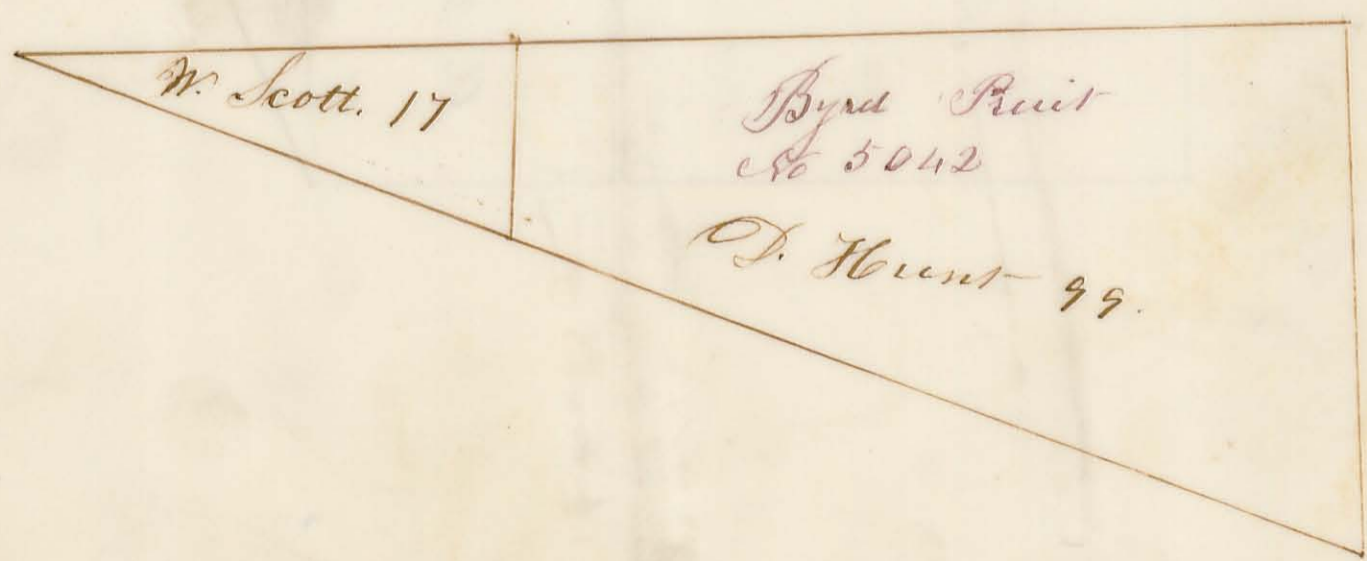 W. Scott. 17
Byrd Pruit
No 5042
D. Hunt 99.